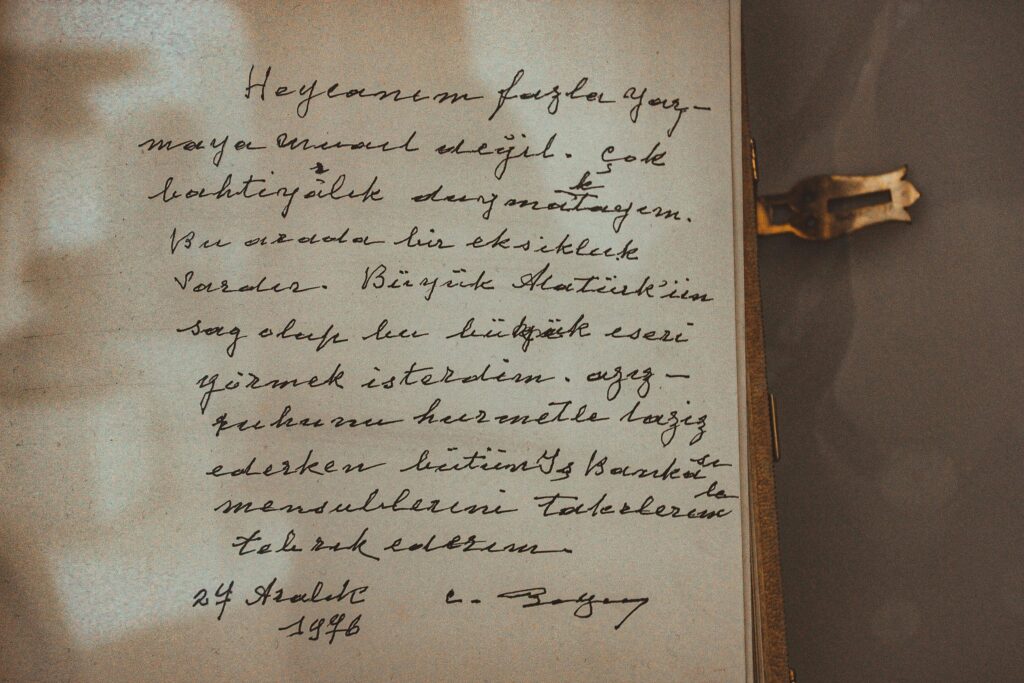 Heycanım fazla yaz-
maya müsait değil. Çok
bahtiyarlık duymaktayım.
Bu arada bir eksikluk
vardır. Büyük Atatürk'ün
sag olup bu büyük eseri
görmek isterdim. aziz-
ruhunu hurmetle taziz
ederken bütün İş Bankası
mensublerini takdirlerimle
tebrik ederim.
27 Aralık C. Bayar
1976